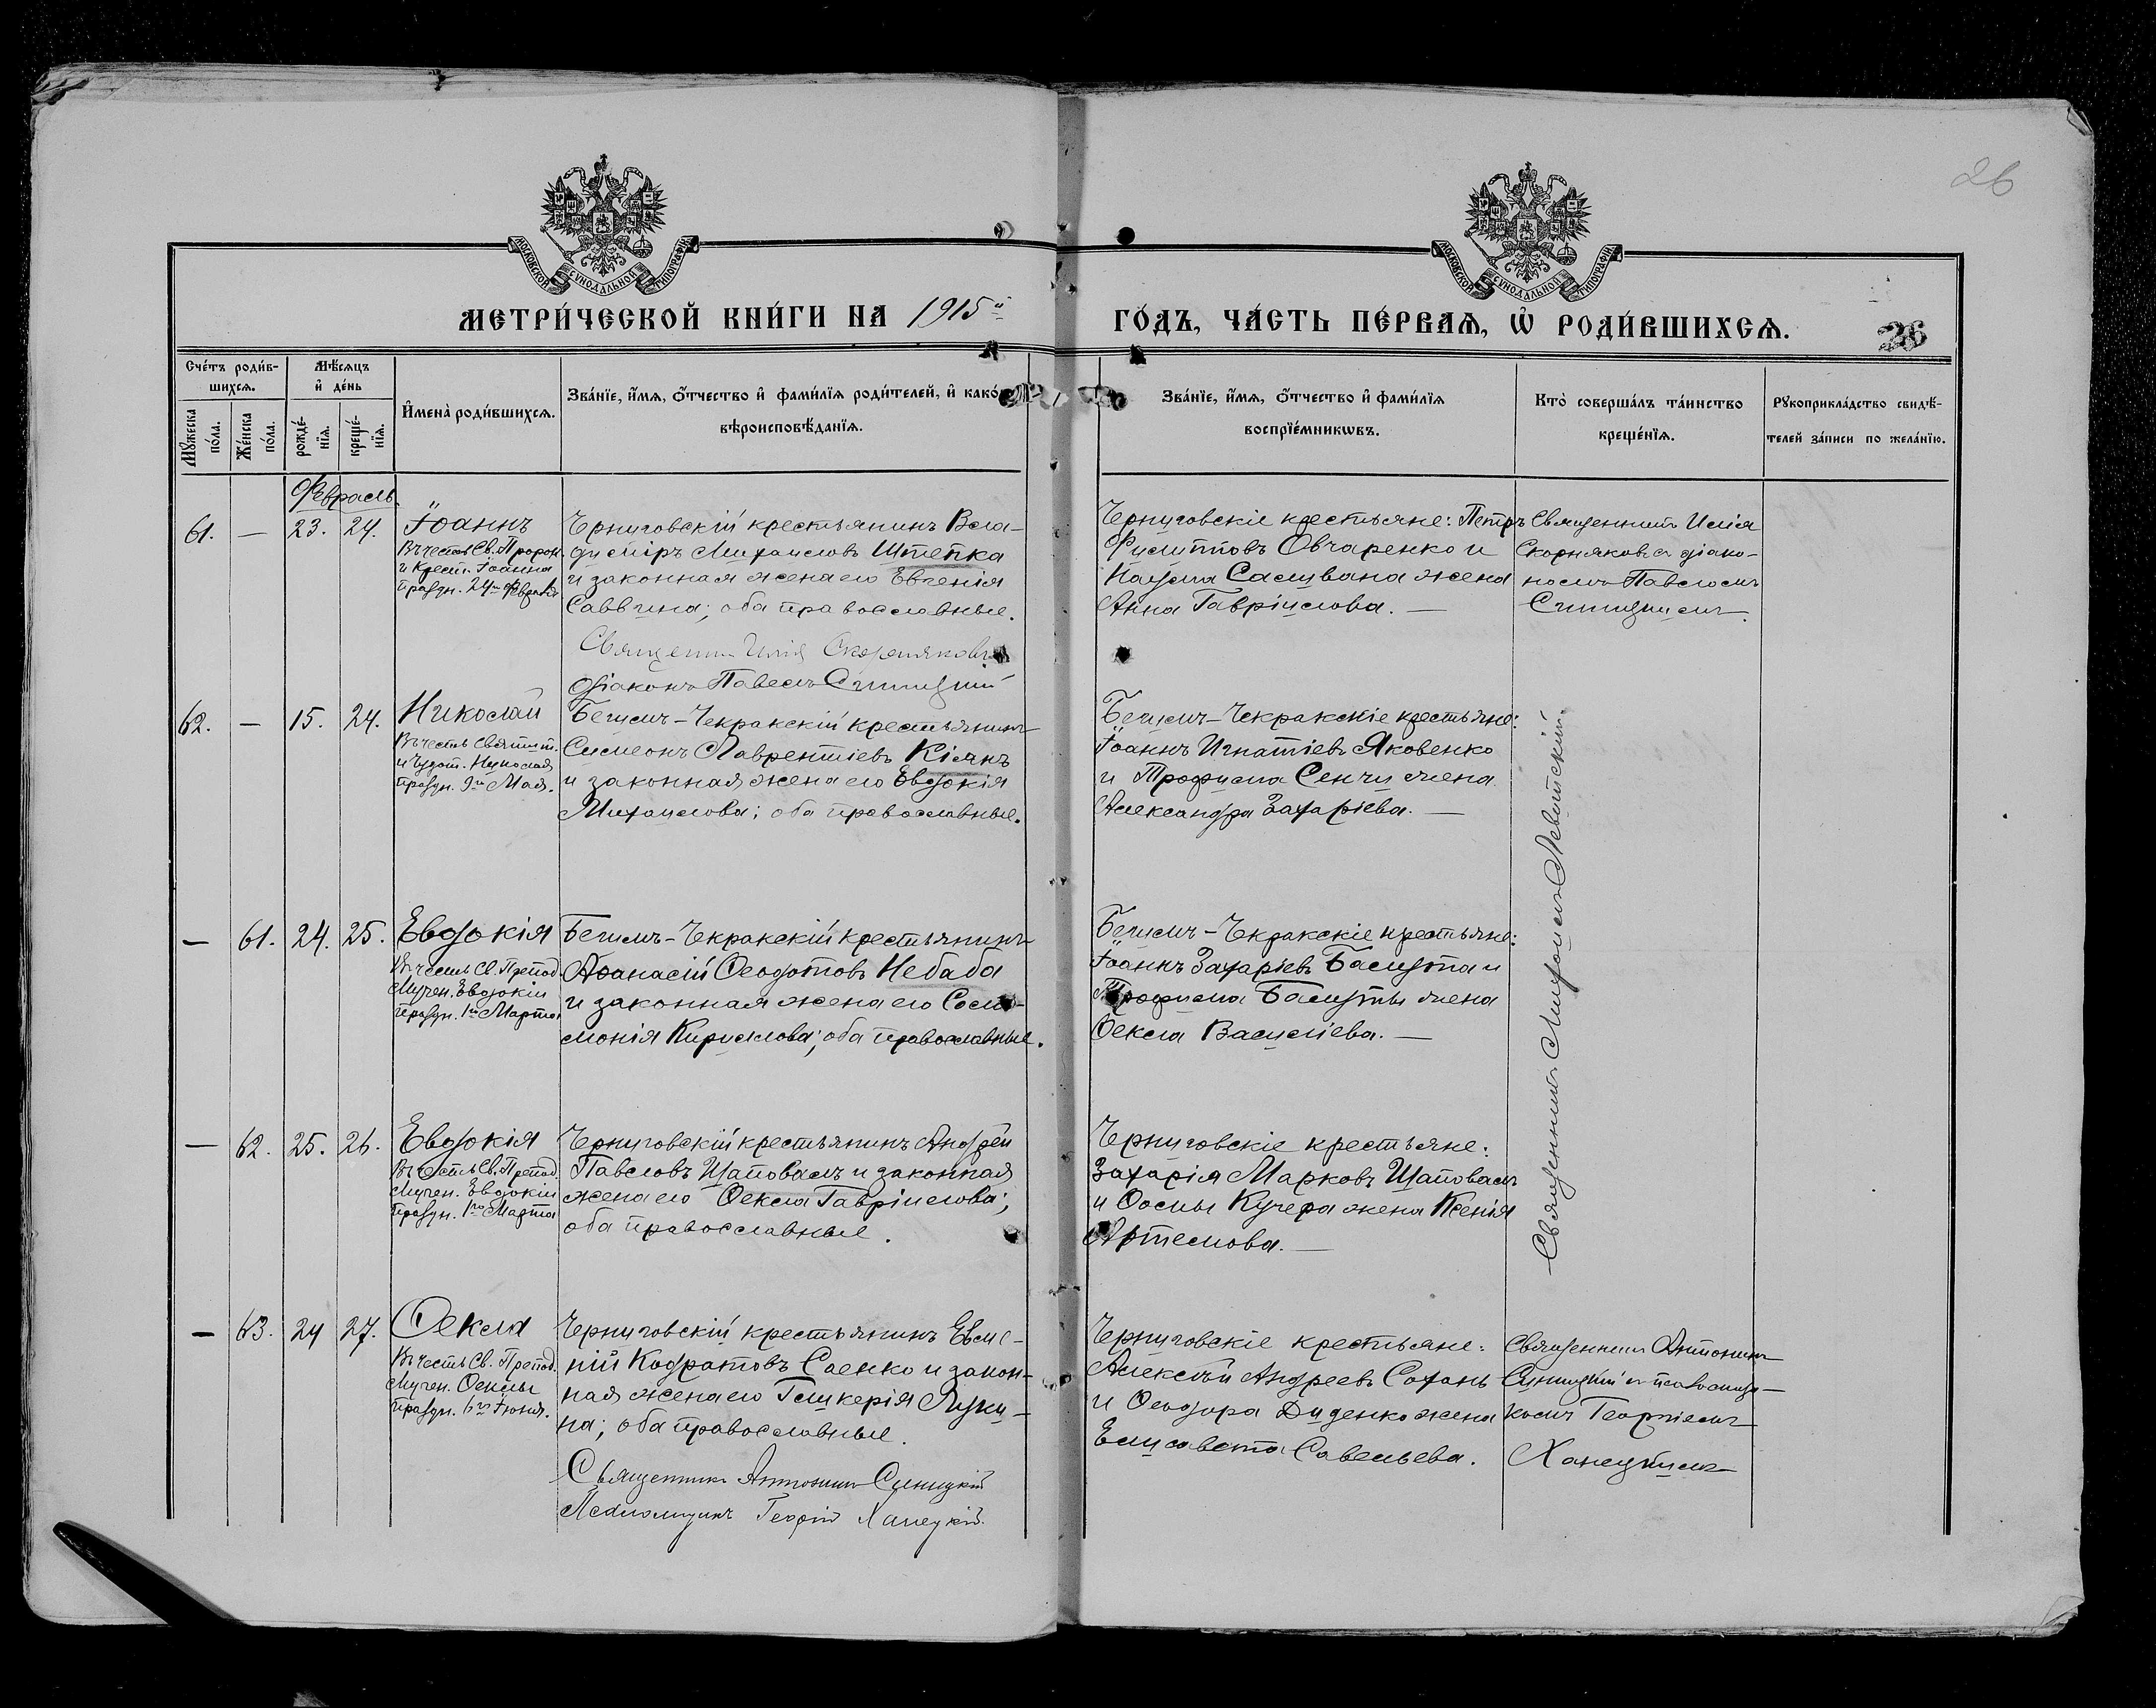 26
МОСКОВСКОЙ СУНОДАЛЬНОЙ ТИПОГРАФІИ.
МОСКОВСКОЙ СУНОДАЛЬНОЙ ТИПОГРАФІИ.
МЕТРИ́ЧЕСКОЙ КНИ́ГИ НА 1915й
ГО́ДЪ, ЧА́СТЬ ПЕ́РВАѦ, Ѡ РОДИ́ВШИХСѦ.
26
Сче́тъ роди́в-
шихсѧ.
Мѣ́сѧцъ
и҆ де́нь
Мꙋ́жеска
по́ла.
Же́нска
по́ла.
рожде́-
нїѧ.
креще́-
нїѧ.
И҆мена̀ роди́вшихсѧ.
Зва́нїе, и҆́мѧ, ѻ҆́тчество и҆ фами́лїѧ роди́телей, и҆ како́
вѣроисповѣ́данїѧ.
Зва́нїе, и҆́мѧ, ѻ҆́тчество и҆ фами́лїѧ
воспрїе́мникѡвъ.
Кто̀ соверша́лъ та́инство
креще́нїѧ.
Рꙋкоприкла́дство свидѣ́-
телей за́писи по жела́нїю.
Февраль.
61. — 23. 24.
Іоаннъ
Въ честь Св. Пророк.
и Крест. Іоанна
праздн. 24го Февраля
Черниговскій крестьянинъ Вла-
диміръ Михаиловъ Штепка
и законная жена его Евгенія
Саввина; оба православные.
Священникъ Илія Скорняковъ
Діаконъ Павелъ Синицкій
Черниговскіе крестьяне: Петръ
Филипповъ Овчаренко и
Наума Саливана жена
Анна Гавріилова. —
Священникъ Илія
Скорняковъ съ діако-
номъ Павломъ
Синицкимъ.
62. — 15. 24.
Николай
Въ честь Святит.
и Чудот. Николая
праздн. 9го Мая.
Бегимъ-Чекракскій крестьянинъ
Симеонъ Лаврентіевъ Кіянъ
и законная жена его Евдокія
Михаилова; оба православные.
Бегимъ-Чекракскіе крестьяне:
Іоаннъ Игнатіевъ Яковенко
и Трофима Сенчи жена
Александра Захаріева. —
Священникъ Михаилъ Левитскій.
— 61. 24. 25.
Евдокія
Въ честь Св. Препод.
Мучен. Евдокіи
праздн. 1го Марта
Бегимъ-Чекракскій крестьянинъ
Аѳанасій Ѳеодотовъ Небаба
и законная жена его Соло-
монія Кириллова; оба православные.
Бегимъ-Чекракскіе крестьяне:
Іоаннъ Захаріевъ Бализта и
Трофима Бализты жена
Ѳекла Василіева. —
— 62. 25. 26.
Евдокія
Въ честь Св. Препод.
Мучен. Евдокіи
праздн. 1го Марта
Черниговскій крестьянинъ Андрей
Павловъ Шаповалъ и законная
жена его Ѳекла Гавріилова;
оба православные.
Черниговскіе крестьяне:
Захарія Марковъ Шаповалъ
и Ѳомы Кучера жена Ксенія
Артемова. —
— 63. 24 27.
Ѳекла
Въ честь Св. Препод.
Мучен. Ѳеклы
праздн. 6го Іюня.
Черниговскій крестьянинъ Евме-
ній Кодратовъ Саенко и закон-
ная жена его Гликерія Луки-
на; оба православные.
Священникъ Антонинъ Синицкій
Псаломщикъ Георгій Ханецкій.
Черниговскіе крестьяне:
Алексѣй Андреевъ Сохань
и Ѳеодора Диденко жена
Елисавета Савельева.
Священникъ Антонинъ
Синицкій съ псаломщи-
комъ Георгіемъ
Ханецкимъ